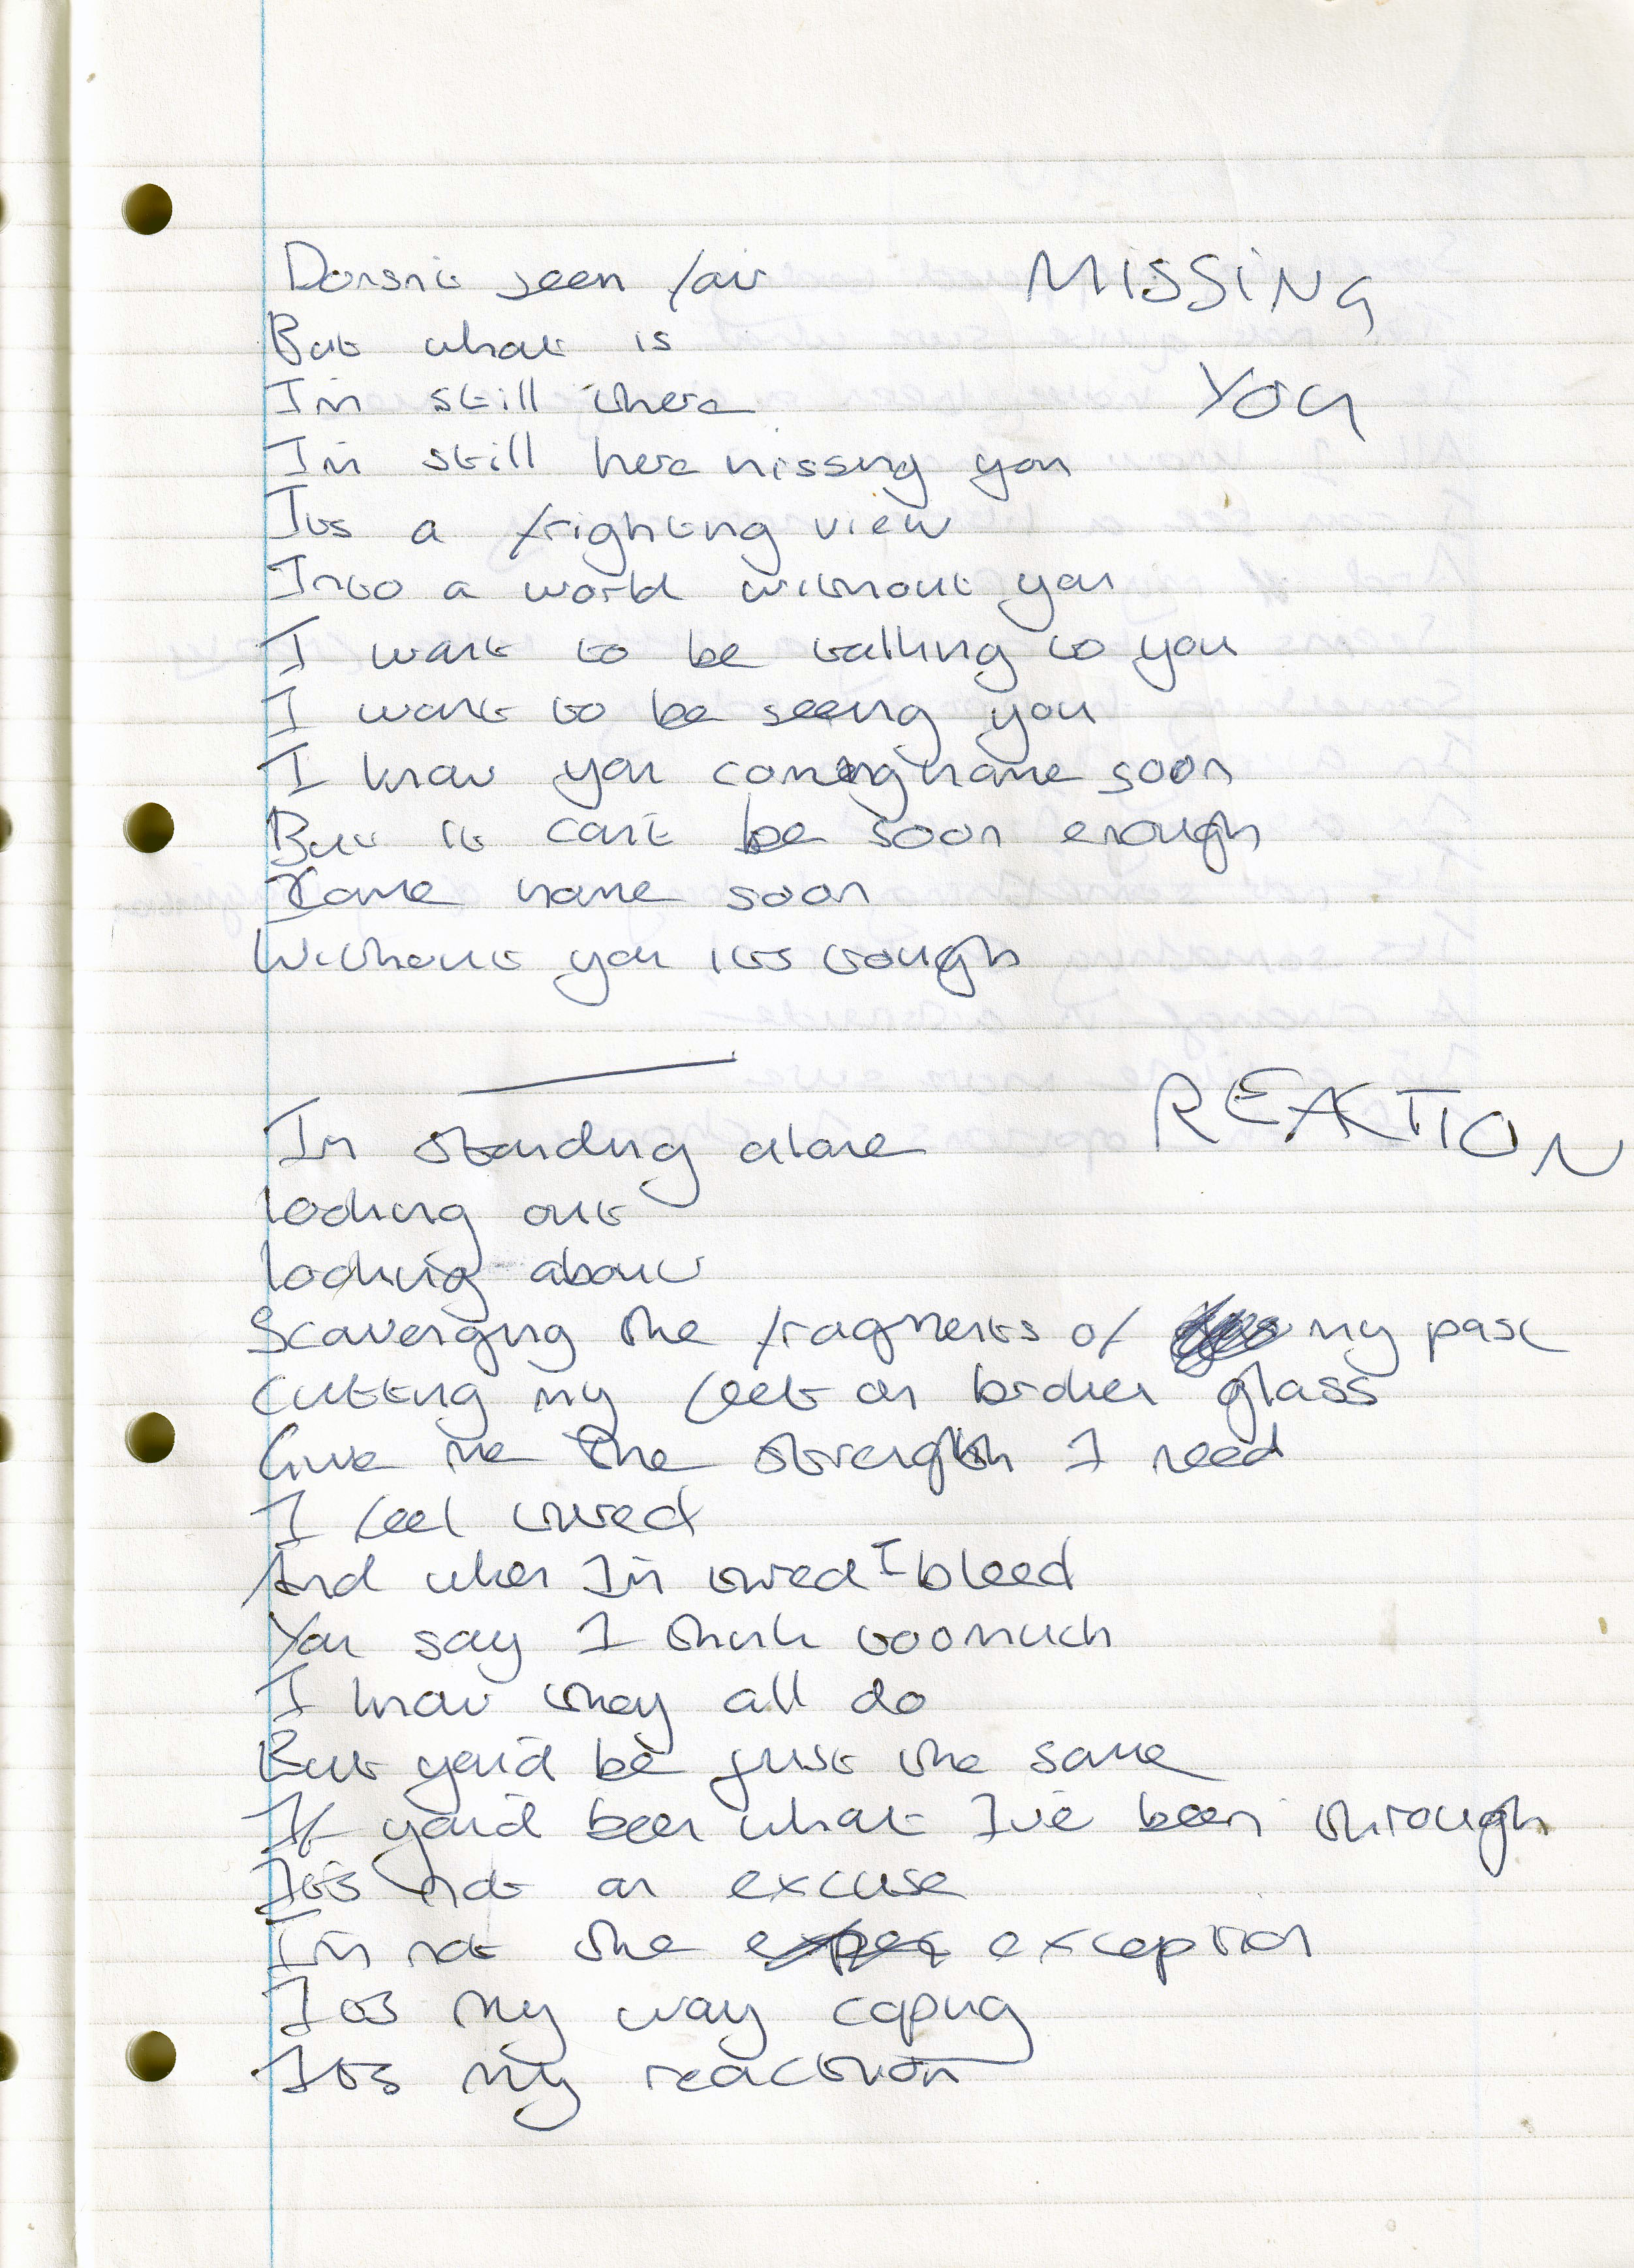 Doesn't seem fair
MISSING
But what is
YOU
I'm still there
I'm still here missing you
Its a frighting view
Into a world without you
I want to be talking to you
I want to be seeing you
I know you coming home soon
But it can't be soon enough
Come home soon
Without you its tough
REAKTION
I'm standing alone
looking out
looking about
Scavenging the fragments of my past
Cutting my feet on broken glass
Give me the strength I need
I feel tired
And when I'm tired I bleed
You say I think too much
I know they all do
But you'd be just the same
If you'd been what I've been through
It's not an excuse
I'm not the exception
Its my way coping
Its my reaction